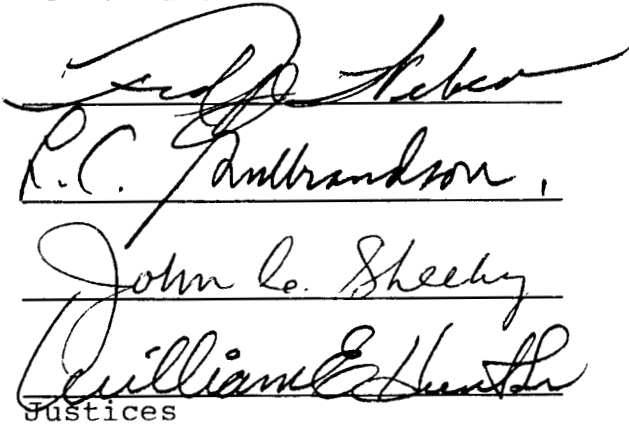 Fred J. Weber
R. C. Gulbrandson,
John C. Sheehy
William E. Hunt Sr
Justices